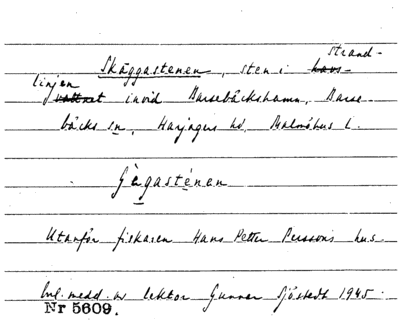 Skäggastenen, sten i strand-
linjen invid Barsebäckshamn, Barse-
bäcks sn, Harjagers hd, Malmöhus l.
Gègasténen
Utanför fiskaren Hans Petter Perssons hus.
Enl. medd. av lektor Gunnar Sjöstedt 1945.
Nr 5609.